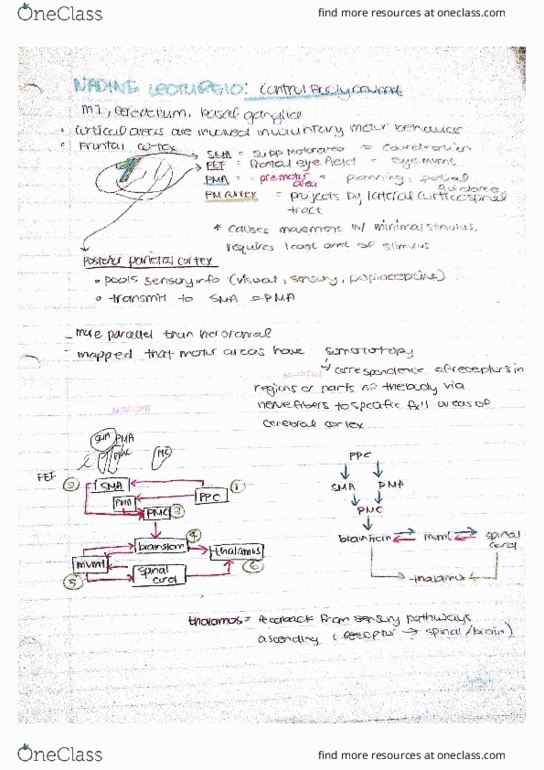 OneClass
find more resources at oneclass.com
NADINE LECTURE 10: Control Body
M1, cerebellum, basal ganglia
• Cortical areas are involved in voluntary motor behavior
• Frontal cortex
SMA = Supp motor area = coordination
FEF = Frontal eye field = eye mvmt
PMA = premotor area = planning, spatial guidance
PM cortex = projects by lateral corticospinal tract
* causes movement w/ minimal stimulus,
requires least amt of stimulus
Posterior parietal cortex
• pools sensory info (visual, sensory,
• transmit to SMA = PMA
- more parallel than
- mapped that motor areas have somatotopy
↳ correspondence of receptors in
regions or parts of the body via
nerve fibers to specific areas of
cerebral cortex
SMA PMA
PPC
MC
FEF
② SMA
PMA
PPC ①
PMC ③
④
brainstem
thalamus
⑥
mvmt
⑤
spinal cord
PPC
SMA PMA
PMC
brainstem mvmt spinal cord
thalamus
thalamus = feedback from sensory pathways
ascending (receptor → spinal/brain)
OneClass
find more resources at oneclass.com